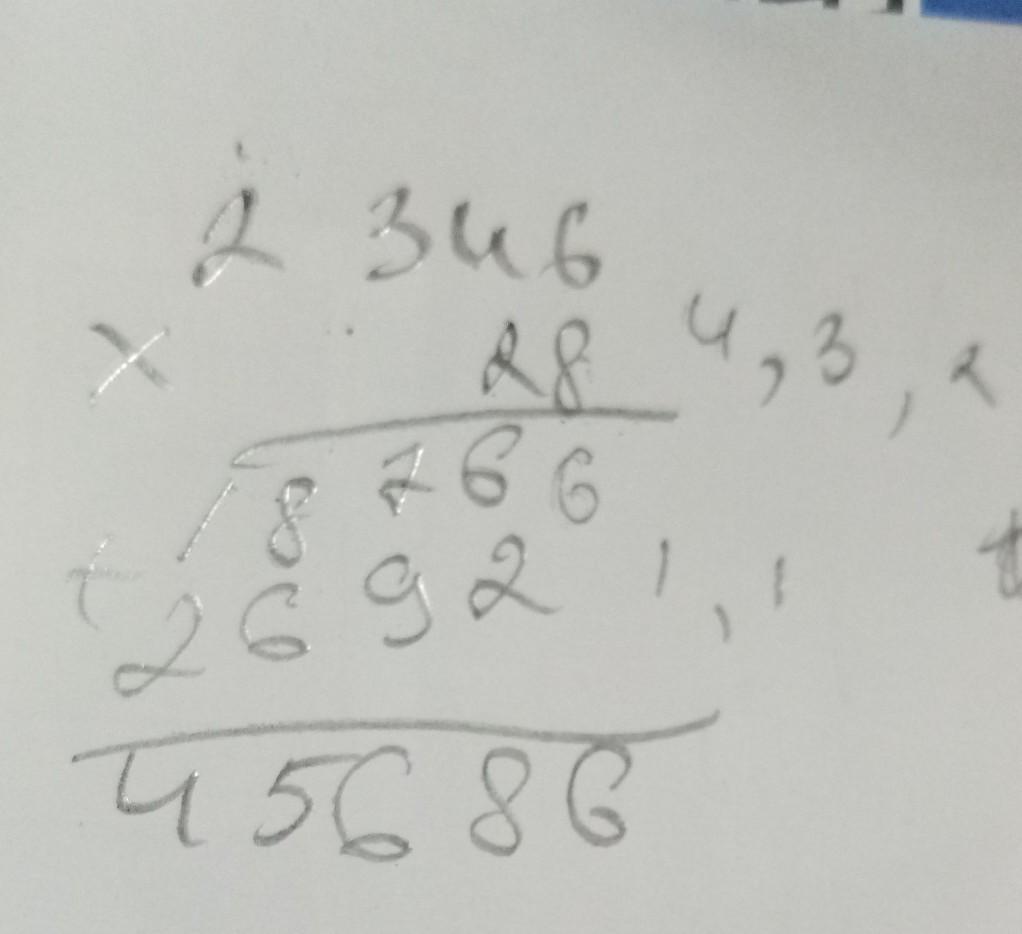 2 346
× 28 4, 3, 2
18766
+ 2692 1, 1 t
45686